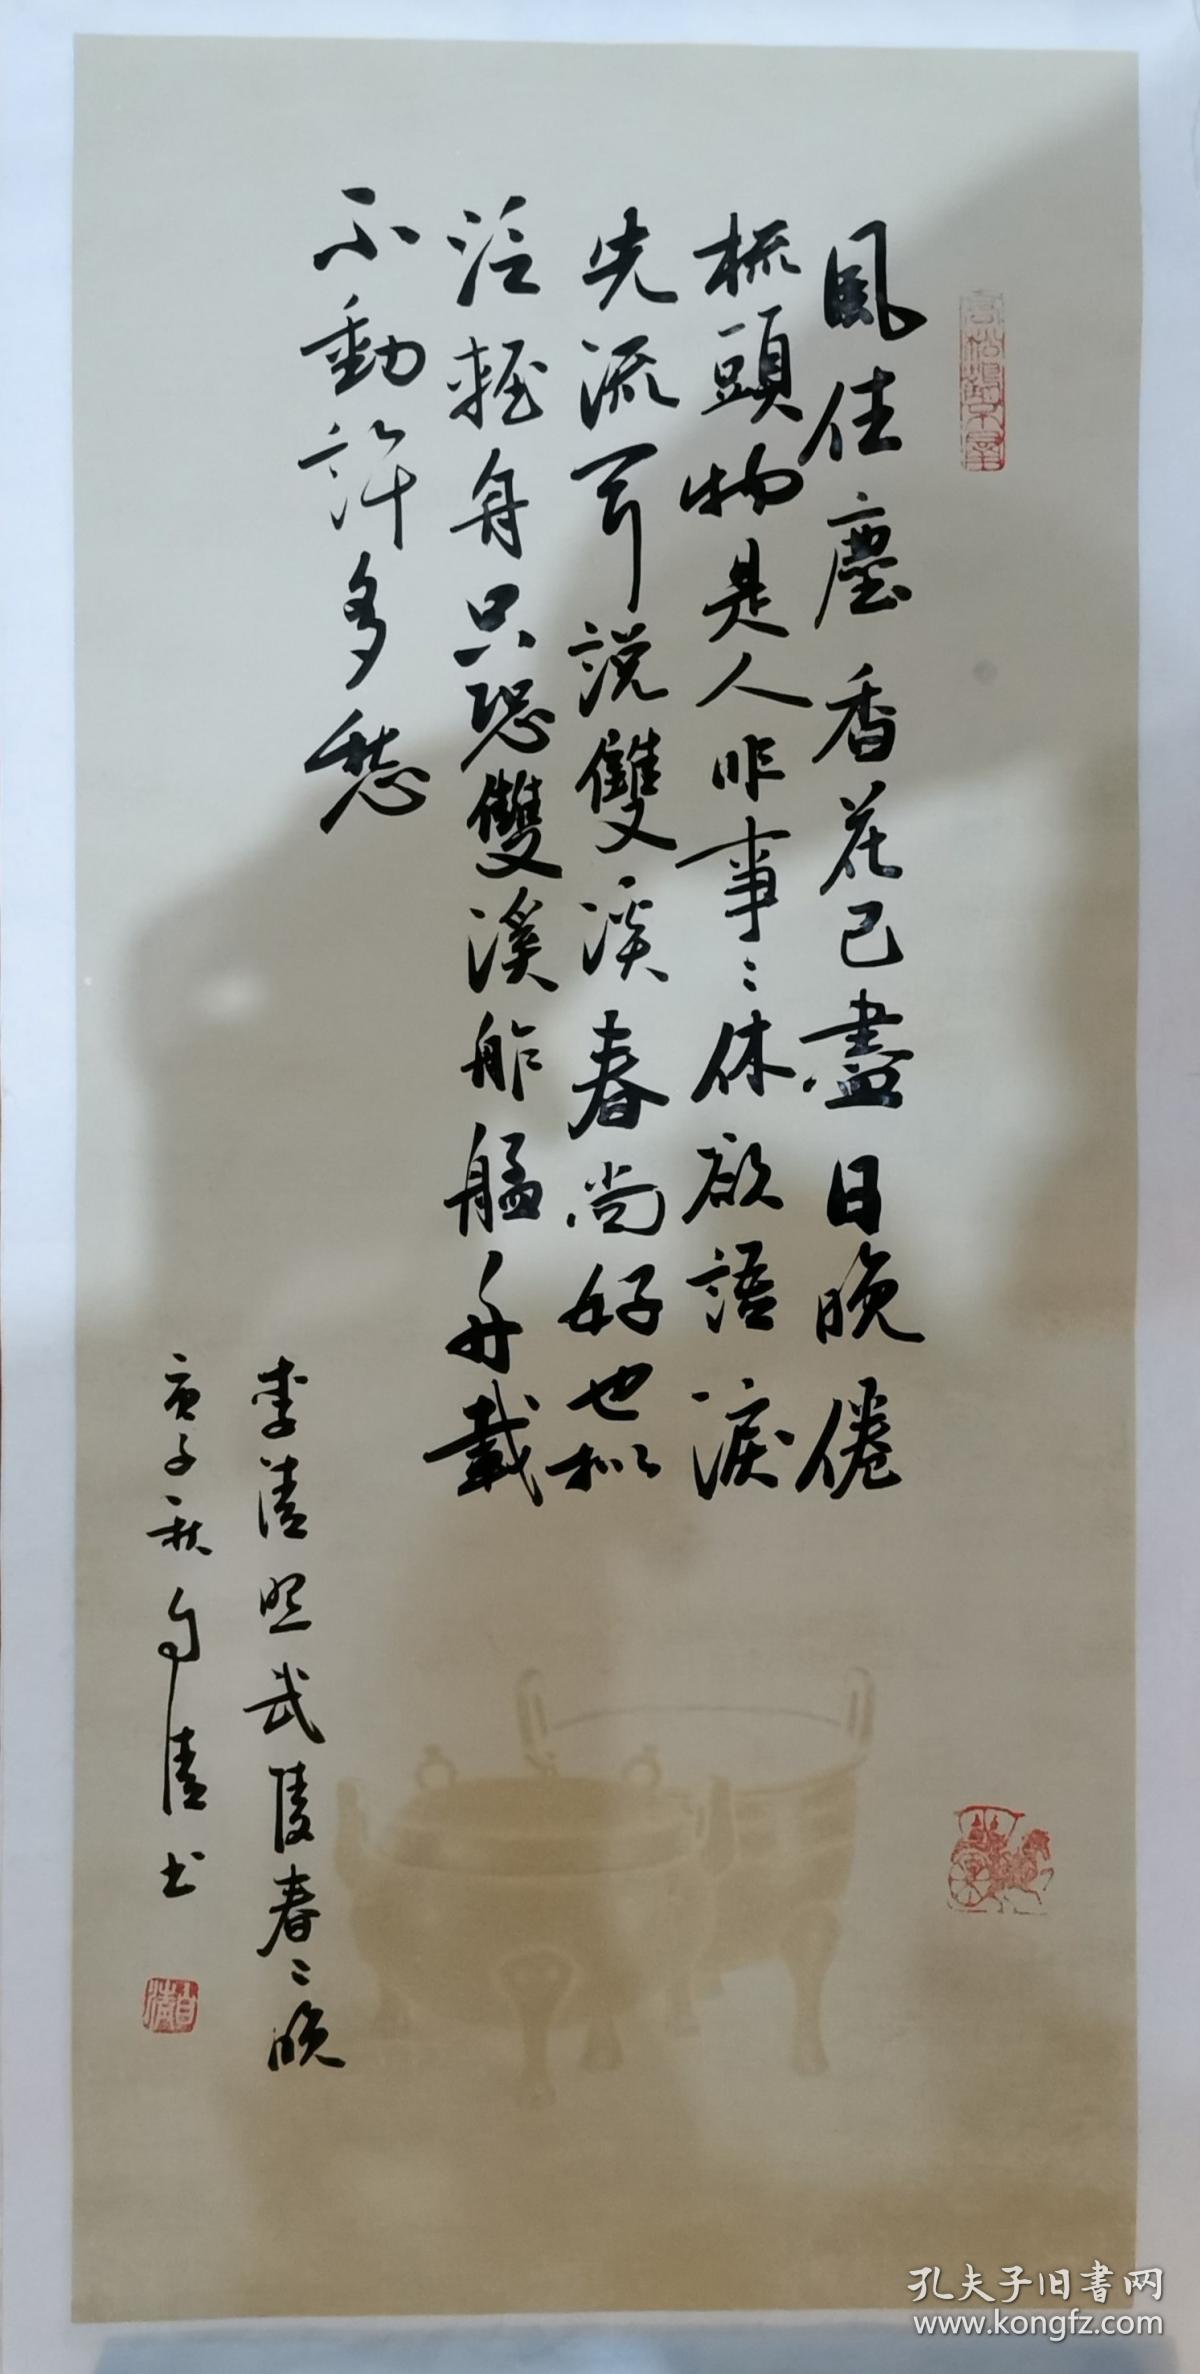 風住塵香花已盡日晚倦
梳頭物是人非事〻休欲語淚
先流聞說雙溪春尚好也擬
泛輕舟只恐雙溪舴艋舟載
不動許多愁
李清照武陵春〻晚
庚子秋自清书
自清
孔夫子旧書网
www.kongfz.com